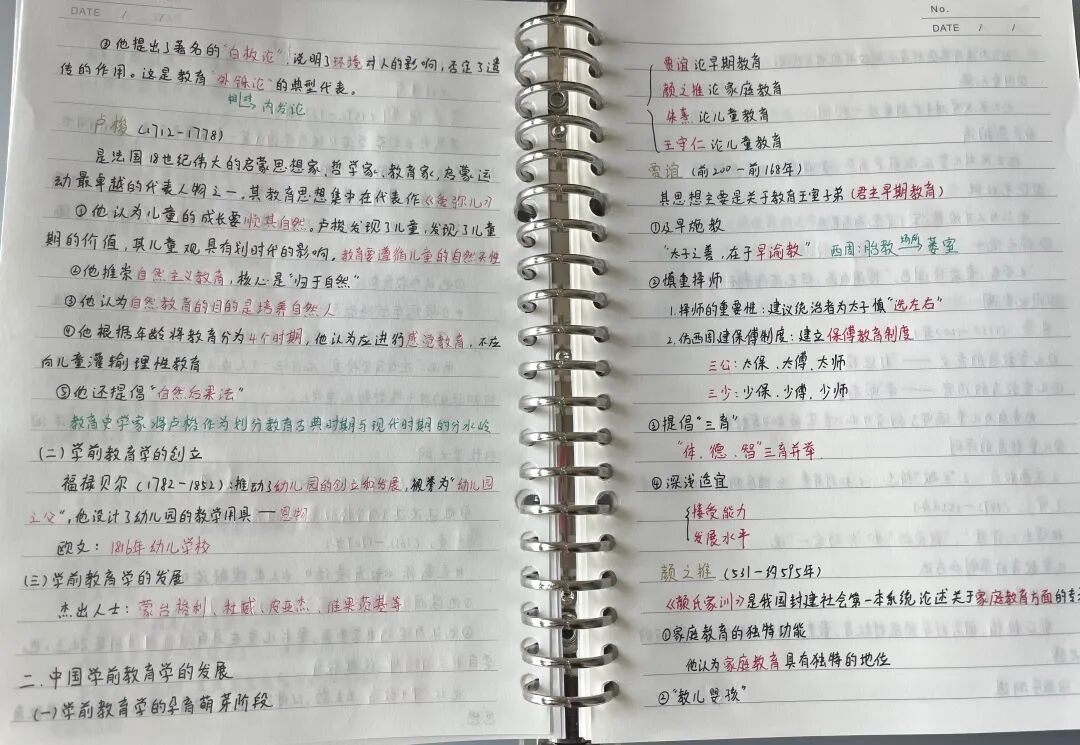 DATE / /
③他提出了著名的“白板论”,说明了环境对人的影响,否定了遗
传的作用。这是教育“外铄论”的典型代表。
相对→内发论
卢梭(1712-1778)
是法国18世纪伟大的启蒙思想家、哲学家、教育家,启蒙运
动最卓越的代表人物之一,其教育思想集中在代表作《爱弥儿》
①他认为儿童的成长要顺其自然。卢梭发现了儿童,发现了儿童
期的价值,其儿童观具有划时代的影响,教育要遵循儿童的自然天性
②他推崇自然主义教育,核心是“归于自然”
③他认为自然教育的目的是培养自然人
④他根据年龄将教育分为4个时期,他认为应进行感觉教育,不应
向儿童灌输理性教育
⑤他还提倡“自然后果法”
教育史学家将卢梭作为划分教育古典时期与现代时期的分水岭
(二)学前教育学的创立
福禄贝尔(1782-1852):推动了幼儿园的创立和发展,被誉为“幼儿园
之父”,他设计了幼儿园的教学用具——恩物
欧文:1816年幼儿学校
(三)学前教育学的发展
杰出人士:蒙台梭利、杜威、皮亚杰、维果茨基等
二.中国学前教育学的发展
(一)学前教育学的孕育萌芽阶段
No.
DATE / /
贾谊论早期教育
颜之推论家庭教育
朱熹论儿童教育
王守仁论儿童教育
贾谊(前200-前168年)
其思想主要是关于教育王室子弟(君主早期教育)
①及早施教
“太子之善,在于早谕教” 西周:胎教 场所→蒌室
②慎重择师
1.择师的重要性:建议统治者为太子慎“选左右”
2.仿西周建保傅制度:建立保傅教育制度
三公:太保、太傅、太师
三少:少保、少傅、少师
③提倡“三育”
“体、德、智”三育并举
④深浅适宜
接受能力
发展水平
颜之推(531-约595年)
《颜氏家训》是我国封建社会第一本系统论述关于家庭教育方面的专
①家庭教育的独特功能
他认为家庭教育具有独特的地位
②“教儿婴孩”